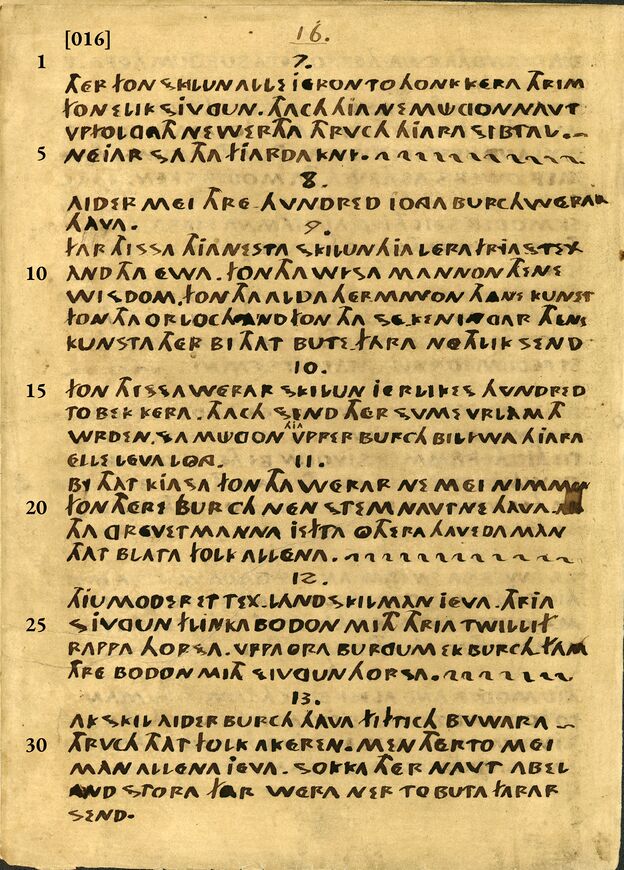 [016] 16.
1 7.
THÉR FON SKILUN ALLE JERON TO HONK KERA THRIM
FON ELIK SJVGUN. THACH HJA NE MÜGON NAVT
VPFOLGATH NE WERTHA THRVCH HJARA SIBTAL.
5 NEJAR SA THA FJARDA KNY.
8.
AIDER MEI THRE HVNDRED JONGA BURCHWERAR
HAVA.
9.
FAR THISSA THJANESTA SKILUN HJA LERA FRIAS TEX
10 AND THA EWA. FON THA WISA MANNON THENE
WISDOM, FON THA ALDA HERMANNON THENE KUNST
FON THA ORLOCH AND FON THA SEKENINGAR THENE
KUNSTA THER BI THAT BUTE FARA NETHLIK SEND
10.
15 FON THISSA WERAR SKILUN JERLIKES HVNDRED
TO BEK KERA. THACH SEND THER SVME VRLAMTH
WRDEN, SA MÜGON HJA VPPER BURCH BILYWA HJARA
ELLE LEVA LONG. 11.
BY THAT KJASA FON THA WERAR NE MEI NIMMEN
20 FON THERE BURCH NEN STEM NAVT NE HAVA.
THA GREVETMANNA JEFTA OTHERA HAVEDA MAN
THAT BLATA FOLK ALLENA.
12.
THJU MODER ET TEX-LAND SKIL MAN JEVA. THRIA
25 SJVGUN FLINKA BODON MITH THRIA TWILLIF
RAPPA HORSA. VPPA ORA BURGUM EK BURCHFAM
THRE BODON MITH SJVGUN HORSA.
13.
AK SKIL AIDER BURCH HAVA FIFTICH BVWARA
30 THRVCH THAT FOLK AKEREN. MEN THERTO MEI
MAN ALLENA JEVA. SOKKA THER NAVT ABEL
AND STORA FOR WERA NER TO BUTA FARAR
SEND.